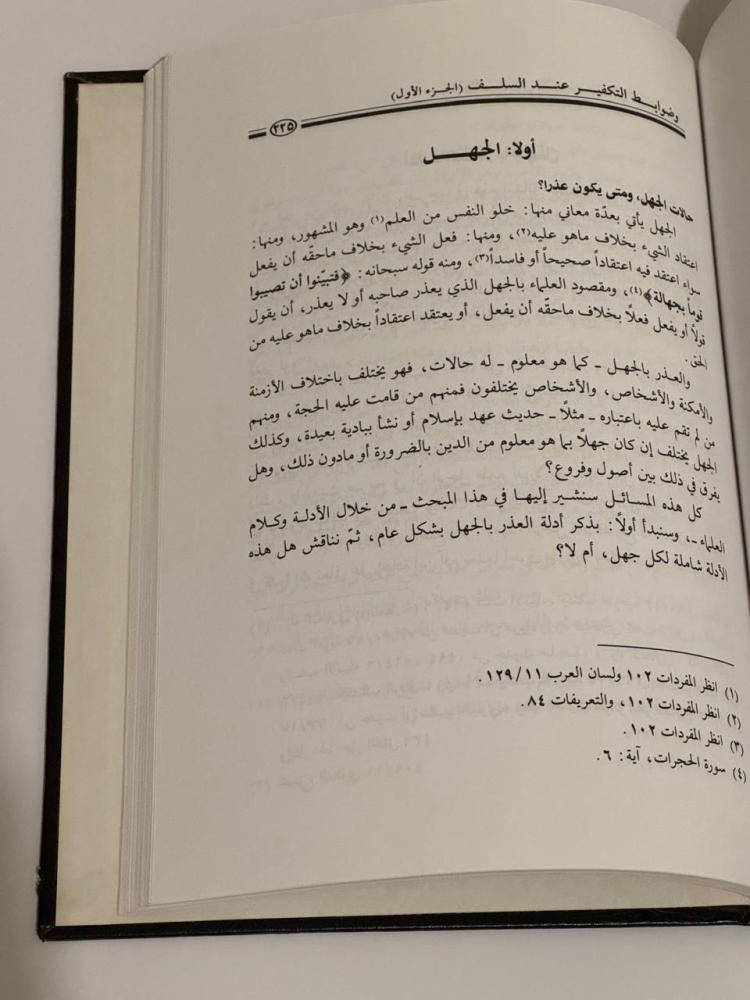 وضوابط التكفير عند السلف (الجزء الأول)
٢٢٥
أولا: الجهل
حالات الجهل، ومتى يكون عذرا؟
الجهل يأتي بعدّة معاني منها: خلو النفس من العلم(١) وهو المشهور، ومنها:
اعتقاد الشيء بخلاف ماهو عليه(٢)، ومنها: فعل الشيء بخلاف ماحقّه أن يفعل
سواء اعتقد فيه اعتقاداً صحيحاً أو فاسداً(٣)، ومنه قوله سبحانه: ﴿فتبيّنوا أن تصيبوا
قوماً بجهالة﴾(٤)، ومقصود العلماء بالجهل الذي يعذر صاحبه أو لا يعذر، أن يقول
قولاً أو يفعل فعلاً بخلاف ماحقّه أن يفعل، أو يعتقد اعتقاداً بخلاف ماهو عليه من
الحق.
والعذر بالجهل ـ كما هو معلوم ـ له حالات، فهو يختلف باختلاف الأزمنة
والأمكنة والأشخاص، والأشخاص يختلفون فمنهم من قامت عليه الحجة، ومنهم
من لم تقم عليه باعتباره ـ مثلاً ـ حديث عهد بإسلام أو نشأ ببادية بعيدة، وكذلك
الجهل يختلف إن كان جهلاً بما هو معلوم من الدين بالضرورة أو مادون ذلك، وهل
يفرق في ذلك بين أصول وفروع؟
كل هذه المسائل سنشير إليها في هذا المبحث ـ من خلال الأدلة وكلام
العلماء ـ، وسنبدأ أولاً: بذكر أدلة العذر بالجهل بشكل عام، ثمّ نناقش هل هذه
الأدلة شاملة لكل جهل، أم لا؟
(١) انظر المفردات ١٠٢ ولسان العرب ١١/ ١٢٩.
(٢) انظر المفردات ١٠٢، والتعريفات ٨٤.
(٣) انظر المفردات ١٠٢.
(٤) سورة الحجرات، آية: ٦.